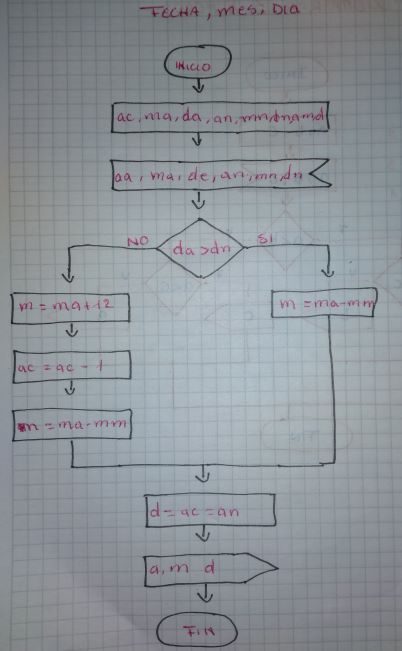 FECHA, mes, DIA
INICIO
ac, ma, da, an, mn, dn, a, m, d
aa, ma, de, an, mn, dn
NO
da > dn
SI
m = ma + 12
m = ma - mm
ac = ac - 1
m = ma - mm
d = ac = an
a, m d
FIN